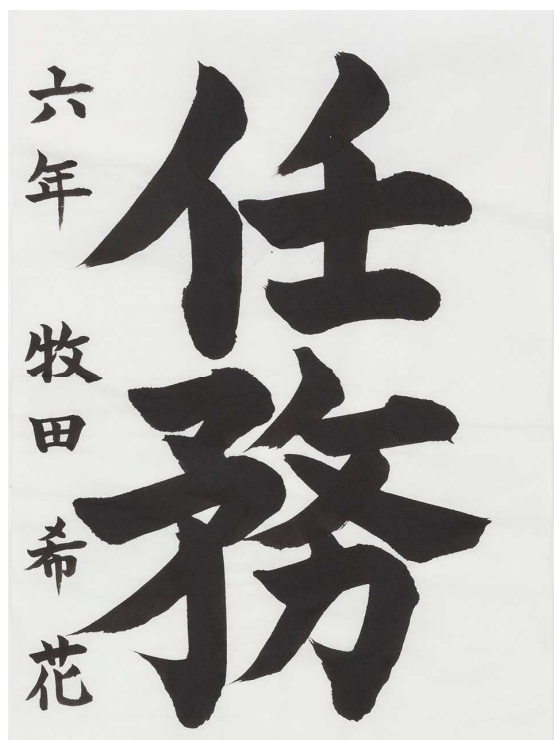 任務
六年 牧田 希花